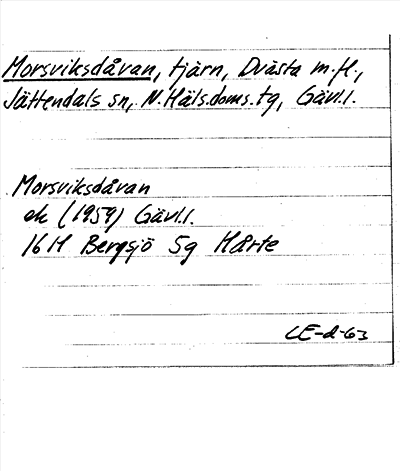 Morsviksdåvan, tjärn, Dvästa m.fl.,
Jättendals sn, N.Häls.doms.tg, Gävl.l.
Morsviksdåvan
ek (1959) Gävl.l.
16H Bergsjö 5g Hårte
CE-d-63